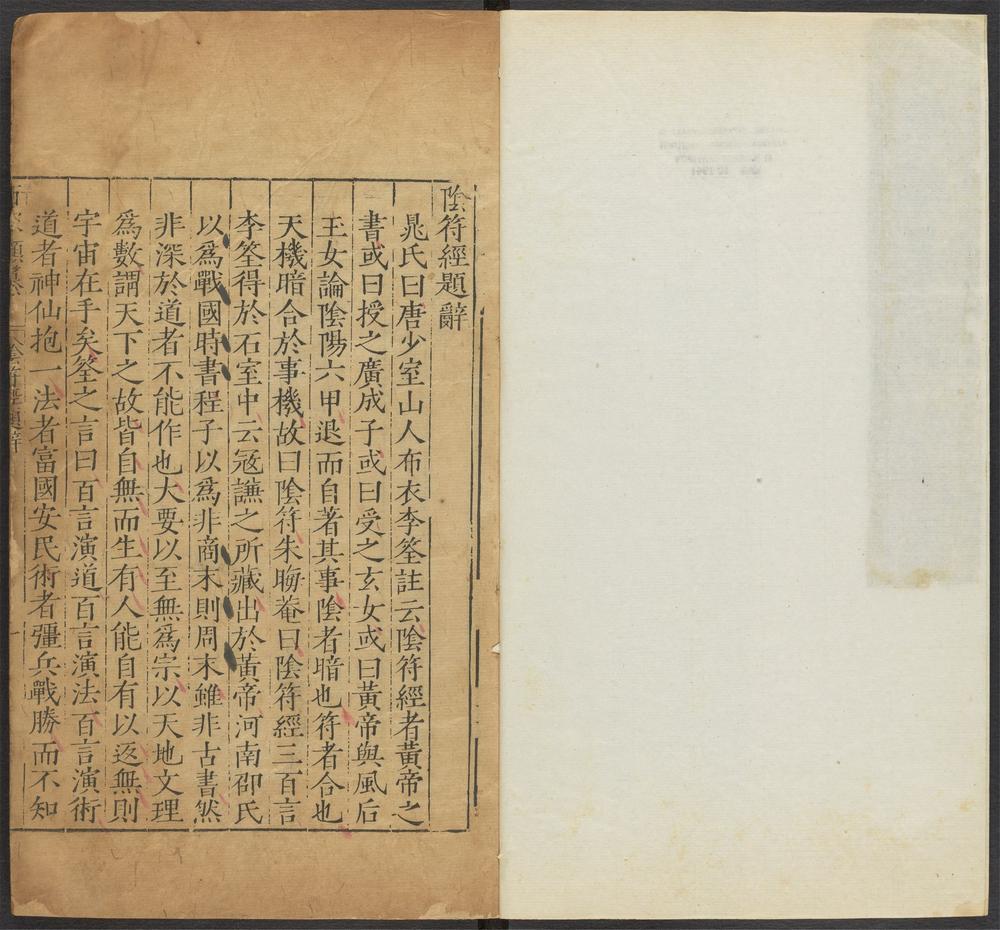 陰符經題辭
晁氏曰唐少室山人布衣李筌註云陰符經者黃帝之
書或曰授之廣成子或曰受之玄女或曰黃帝與風后
玉女論陰陽六甲退而自著其事陰者暗也符者合也
天機暗合於事機故曰陰符朱晦菴曰陰符經三百言
李筌得於石室中云寇謙之所藏出於黃帝河南邵氏
以爲戰國時書程子以爲非商末則周末雖非古書然
非深於道者不能作也大要以至無爲宗以天地文理
爲數謂天下之故皆自無而生有人能自有以返無則
宇宙在手矣筌之言曰百言演道百言演法百言演術
道者神仙抱一法者富國安民術者彊兵戰勝而不知
陰符經題辭 一